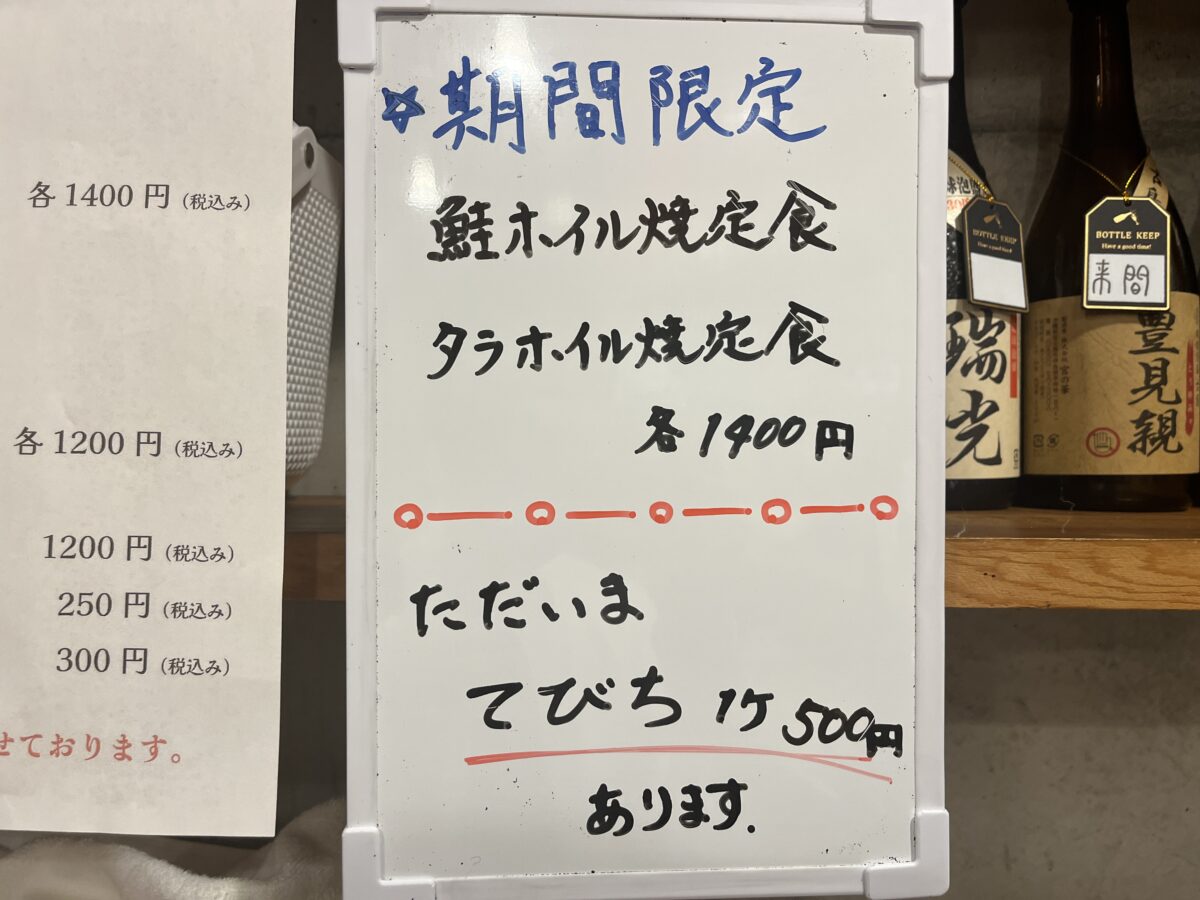 各1400円(税込み)
各1200円(税込み)
1200円(税込み)
250円(税込み)
300円(税込み)
せております。
☆期間限定
鮭ホイル焼定食
タラホイル焼定食
各1400円
ただいま
てびち 1ケ 500円
あります.
BOTTLE KEEP
Have a good time!
瑞光
BOTTLE KEEP
Have a good time!
来間
豊見親